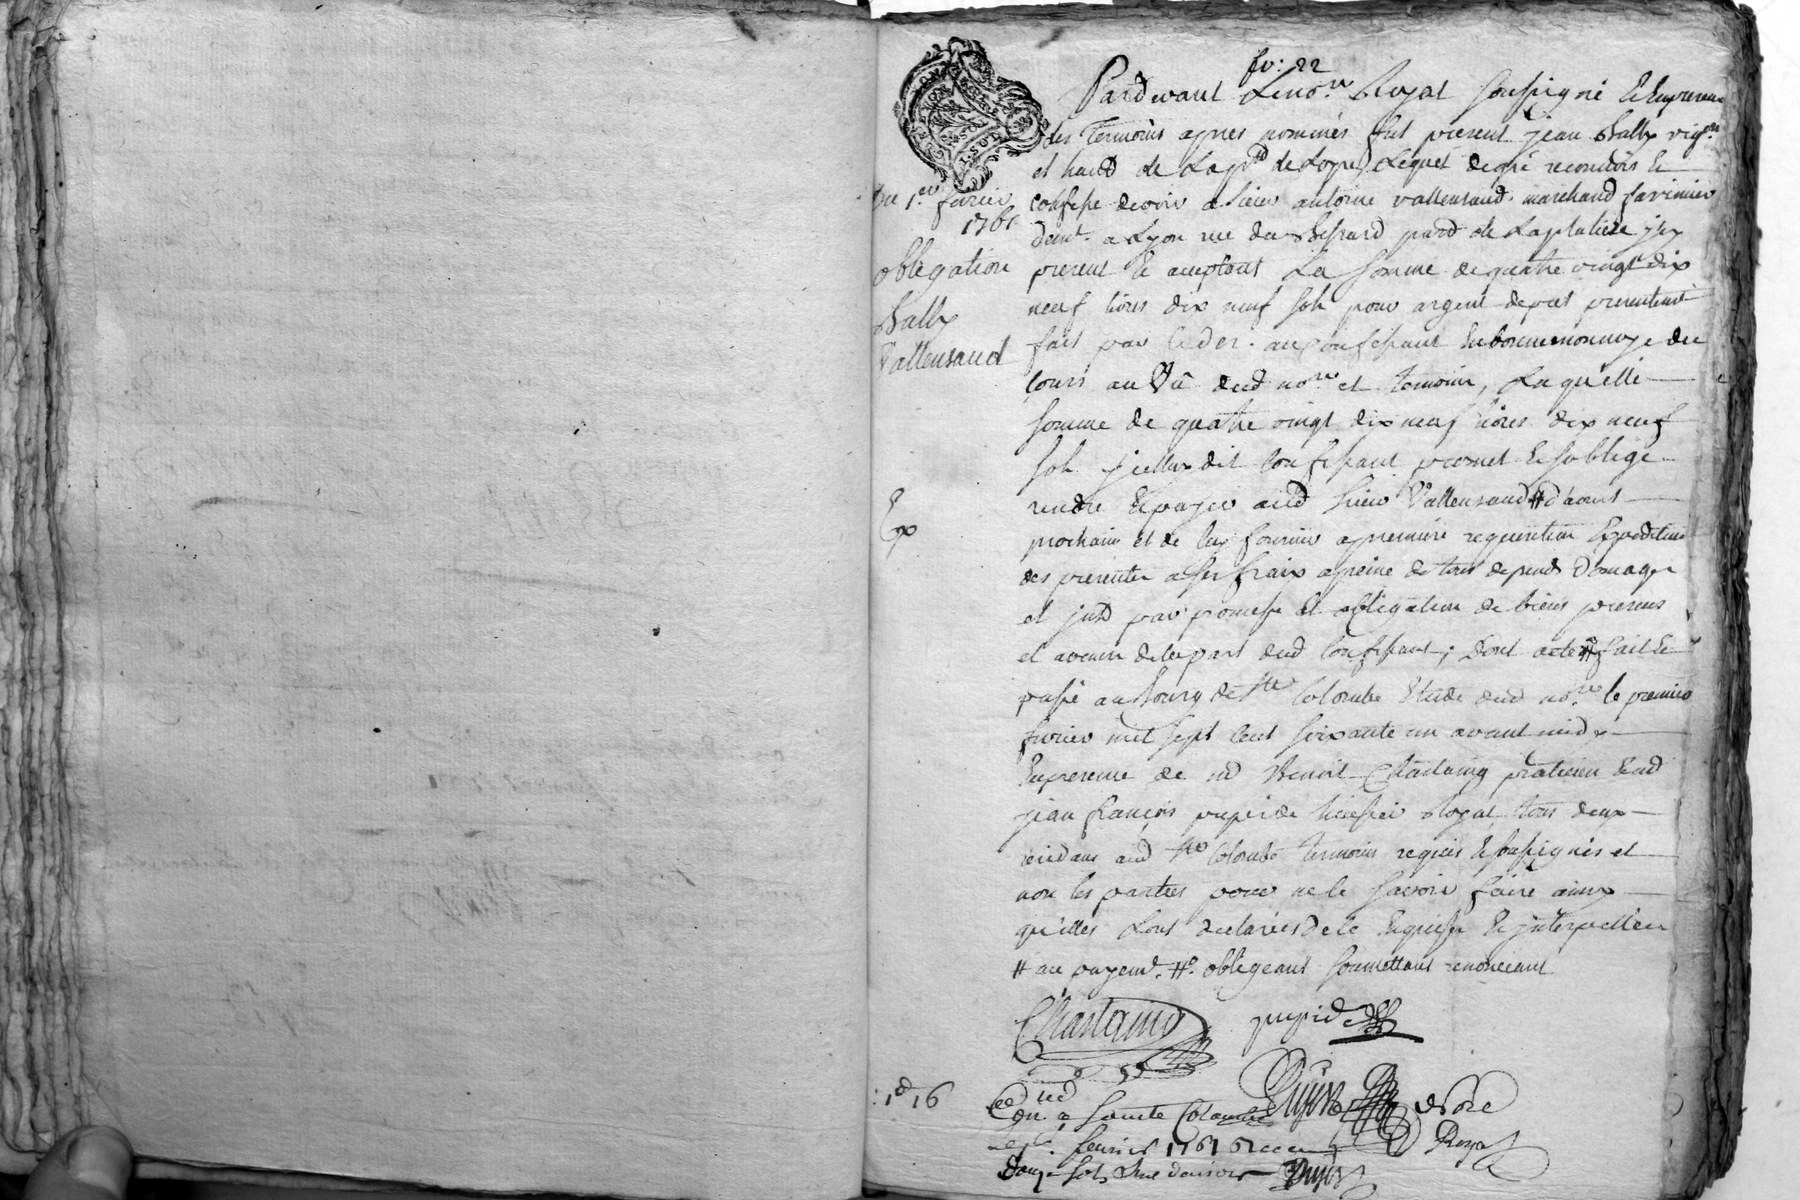 fo: 22
Pardevant Le no.re Royal soussigné & En presence
des Temoins apres nommés fut present jean Bally vig.on
et hand de La p.sse de Loyre, Lequel de gré reconnois &
confesse devoir a sieur antoine vallensaud marchand
dem.t a Lyon rue du Bessard par.d de La platiere jcy
present & acceptant La somme de quatre vingt dix
neuf livres dix neuf sols pour argent de pret presentement
fait par led er. au confessant En bonne monnoye du
cours au Vû dud no.re et temoins, Laquelle
somme de quatre vingt dix neuf livres dix neuf
sols jcelluy dit confessant promet & s'oblige
rendre & payer aud sieur Vallensaud # d'aoust
prochain et de luy fournir a premiere requisition Expedition
des presentes a ses fraix a peine de tous depends domages
et jnts par promesse et obligation de biens presens
et avenir de la part dud confessant; Dont acte # fait &
passé au bourg de S.te Colombe Etude dud no.re le premier
fevrier mil sept cent soixante un avant midy
En presence de sd Benoit Chastaing praticien & sd
jean françois pupier de huissier Royal, tous deux
residans aud S.te Colombe temoins requis & soussignés et
non les parties pour ne le sçavoir faire ainsy
qu'elles L'ont declarées de ce Enquises & jnterpellées
# au payem.t #. obligeant soumettant renonceant
Du 1.er fevrier
1761
obligation
Bally
Vallensaud
Exp
Chastaing
: 1d 16
con. a Sainte Colombe
fevrier 1761 Recu
douze sols
Dujast
no.re
Royal